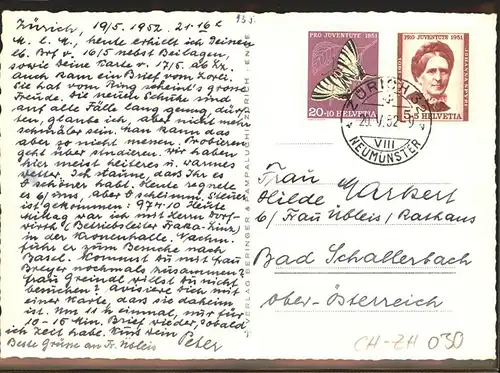 Zürich, 19/5. 1952. 21.16
M. l. M., heute erhielt ich Deinen
l. Brf. v. 16/5 nebst Beilagen,
sowie Deine Karte v. 17/5.
auch kam ein Brief vom Zorli.
Sie hat vom Ring scheint's grosse
Freude. Die neuen Schuhe sind
auf alle Fälle lang genug, dürf-
ten, glaube ich, aber nicht mehr
schmäler sein. Man kann das
aber so nicht messen. Probieren
geht über studieren. Wir haben
hier meist heiteres u. warmes
Wetter. Ich staune, dass Ihr es
so schirer habt. Heute regnete
es b/ uns, aber
ist gekommen: 974.10 Heute
Mittag war ich mit Herrn Dorf-
wirth (Betriebsleiter Linz)
in der Kronenhalle. Nachm.
fuhr er zum Besuche nach
Basel. Kommst Du mit Frau
Breyer nochmals zusammen?
Frau Greindl willst Du nicht
besuchen? Avisiere Dich mit
einer Karte, dass sie daheim
ist. Um 11 h einmal, nur für
10-15 Min. Brief wieder, sobald
ich Zeit habe. Küns Dein Peter
Beste Grüsse an Fr. Übleis
VERLAG BERINGER & PAMPALUCHI ZÜRICH - ENGE
935.
PRO JUVENTUTE 1951
20+10 HELVETIA
PRO JUVENTUTE 1951
JOHANNA SPYRI
5+5 HELVETIA
ZÜRICH
20.V.52
VIII
NEUMÜNSTER
Frau
Hilde Markert
b/ Frau Übleis, Rathaus
Bad Schallerbach
Ober-Österreich
CH-ZH 030